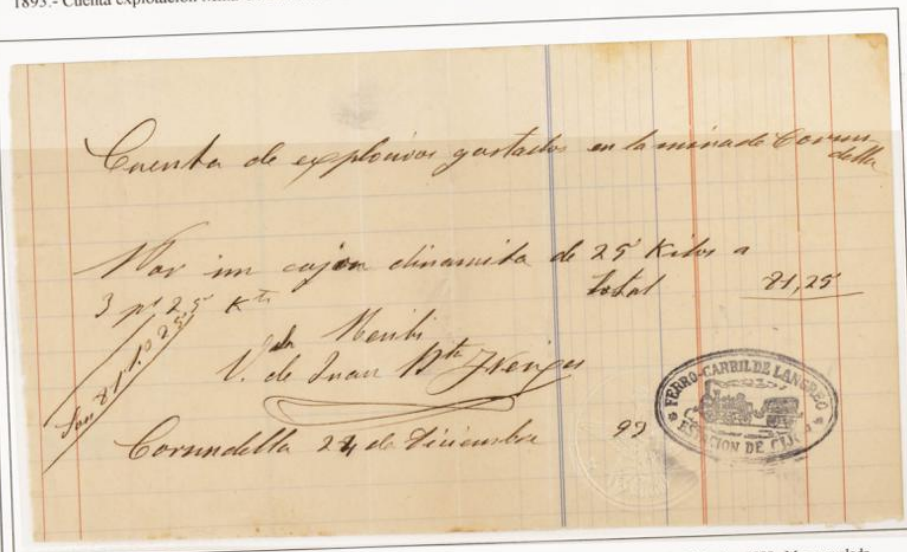 1893.- Cuenta explotación
Cuenta de explocivos gastados en la mina de Cornu
della
Por un cajon dinamita de 25 Kilos a
3 pts 25 Kts total 81,25
Son 81 p. 25
Recibi
V.da de Juan Bta
Cornudella 24 de Diciembre 99
FERRO-CARRIL DE LANGREO
ESTACION DE GIJON